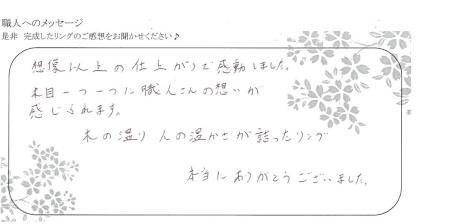 職人へのメッセージ
是非 完成したリングのご感想をお聞かせください♪
想像以上の仕上がりで感動しました。
木目一つ一つに職人さんの想いが
感じられます。
木の温り 人の温かさが詰ったリング
本当にありがとうございました。